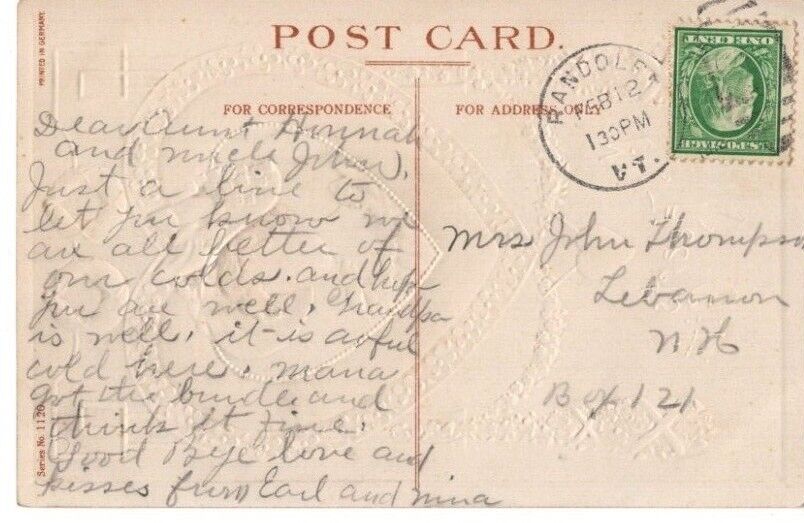 POST CARD.
PRINTED IN GERMANY
FOR CORRESPONDENCE
FOR ADDRESS ONLY
RANDOLPH
FEB 12
1 30 PM
VT.
U.S. POSTAGE
ONE CENT
Dear Aunt Hannah
and uncle John,
Just a line to
let you know we
are all better of
our colds. and hope
you are well, Grandpa
is well, it is awful
cold here. mama
got the bundle and
think it fine.
Good Bye love and
kisses from Earl and nina
Mrs John Thompson
Lebanon
N H
Box 121
Series No. 1126